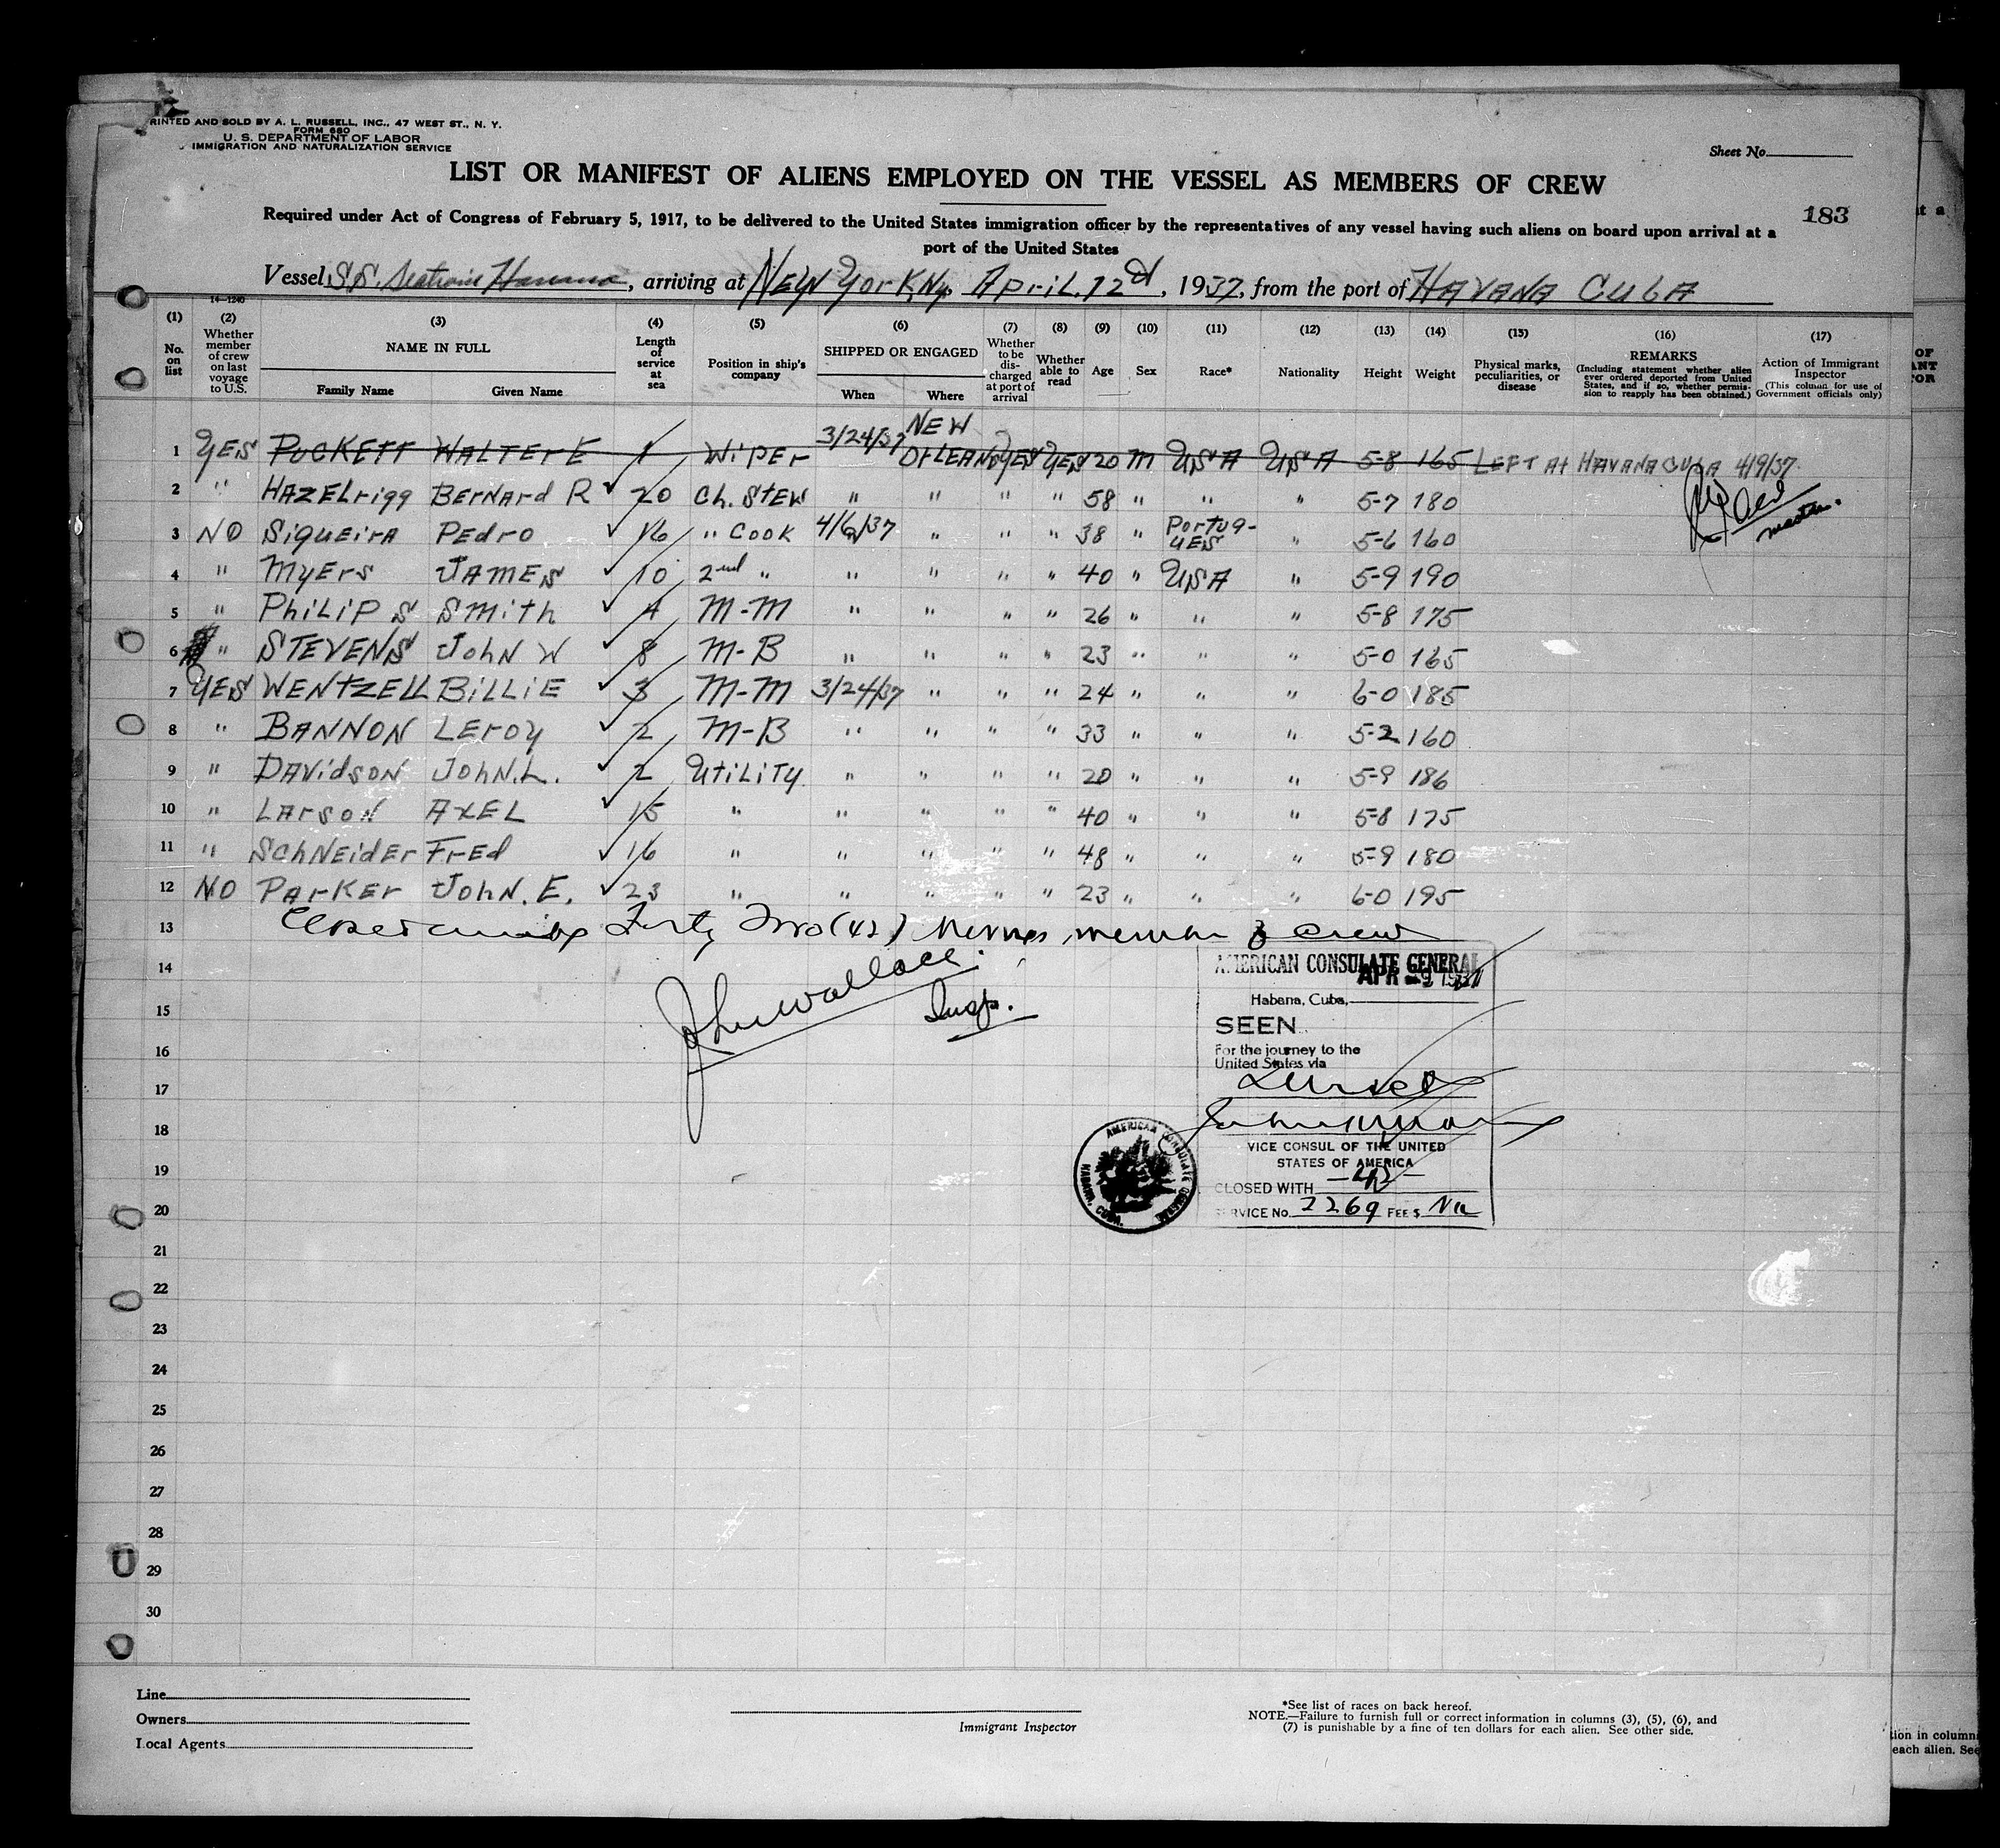 RINTED AND SOLD BY A. L. RUSSELL, INC., 47 WEST ST., N. Y.
FORM 680
U. S. DEPARTMENT OF LABOR
IMMIGRATION AND NATURALIZATION SERVICE
Sheet No.
LIST OR MANIFEST OF ALIENS EMPLOYED ON THE VESSEL AS MEMBERS OF CREW
183
Required under Act of Congress of February 5, 1917, to be delivered to the United States immigration officer by the representatives of any vessel having such aliens on board upon arrival at a
port of the United States
Vessel S.S. Seatrain Havana, arriving at NEW YORK NY. APRIL. 12d, 1937, from the port of HAVANA CUBA
14-1240
(1) No. on list
(2) Whether member of crew on last voyage to U.S.
(3) NAME IN FULL Family Name Given Name
(4) Length of service at sea
(5) Position in ship's company
(6) SHIPPED OR ENGAGED When Where
(7) Whether to be discharged at port of arrival
(8) Whether able to read
(9) Age
(10) Sex
(11) Race*
(12) Nationality
(13) Height
(14) Weight
(15) Physical marks, peculiarities, or disease
(16) REMARKS (Including statement whether alien ever ordered deported from United States, and if so, whether permission to reapply has been obtained.)
(17) Action of Immigrant Inspector (This column for use of Government officials only)
1 YES PUCKETT WALTER E 1 WIPER 3/24/37 NEW ORLEANS YES YES 20 M USA USA 5-8 165 LEFT At HAVANA CUBA 4/9/37.
2 " HAZELrigg BERNArd R 20 Ch. StEW " " " " 58 " " " 5-7 180
master.
3 NO SiquEirA PEdro 16 " COOK 4/6/37 " " " 38 " Portug-UES " 5-6 160
4 " MyErs JAMES 10 2nd " " " " " 40 " USA " 5-9 190
5 " PhiLiP S SMith 4 M-M " " " " 26 " " " 5-8 175
6 " STEVENS JohN W 8 M-B " " " " 23 " " " 5-0 165
7 YES WENTZELL BILLIE 3 M-M 3/24/37 " " " 24 " " " 6-0 185
8 " BANNON LEroy 2 M-B " " " " 33 " " " 5-2 160
9 " DAVidSON JOHN.L. 2 UtiLiTy " " " " 20 " " " 5-9 186
10 " LArSON AXEL 15 " " " " " 40 " " " 5-8 175
11 " SchNEidEr FrEd 16 " " " " " 48 " " " 5-9 180
12 NO PArKEr JohN. E. 23 " " " " " 23 " " " 6-0 195
13 Forty Two (42) crew
14
John Wallace.
Insp.
AMERICAN CONSULATE GENERAL
APR -9 1937
Habana, Cuba,
15
SEEN
16
For the journey to the
United States via
17
18
VICE CONSUL OF THE UNITED
STATES OF AMERICA
19
CLOSED WITH -42-
20
SERVICE No. 2269 FEE $ Nil
AMERICAN CONSULATE GENERAL HABANA, CUBA.
21
22
23
24
25
26
27
28
29
30
Line
Owners
Local Agents
Immigrant Inspector
*See list of races on back hereof.
NOTE.—Failure to furnish full or correct information in columns (3), (5), (6), and
(7) is punishable by a fine of ten dollars for each alien. See other side.
tion in column
each alien. See